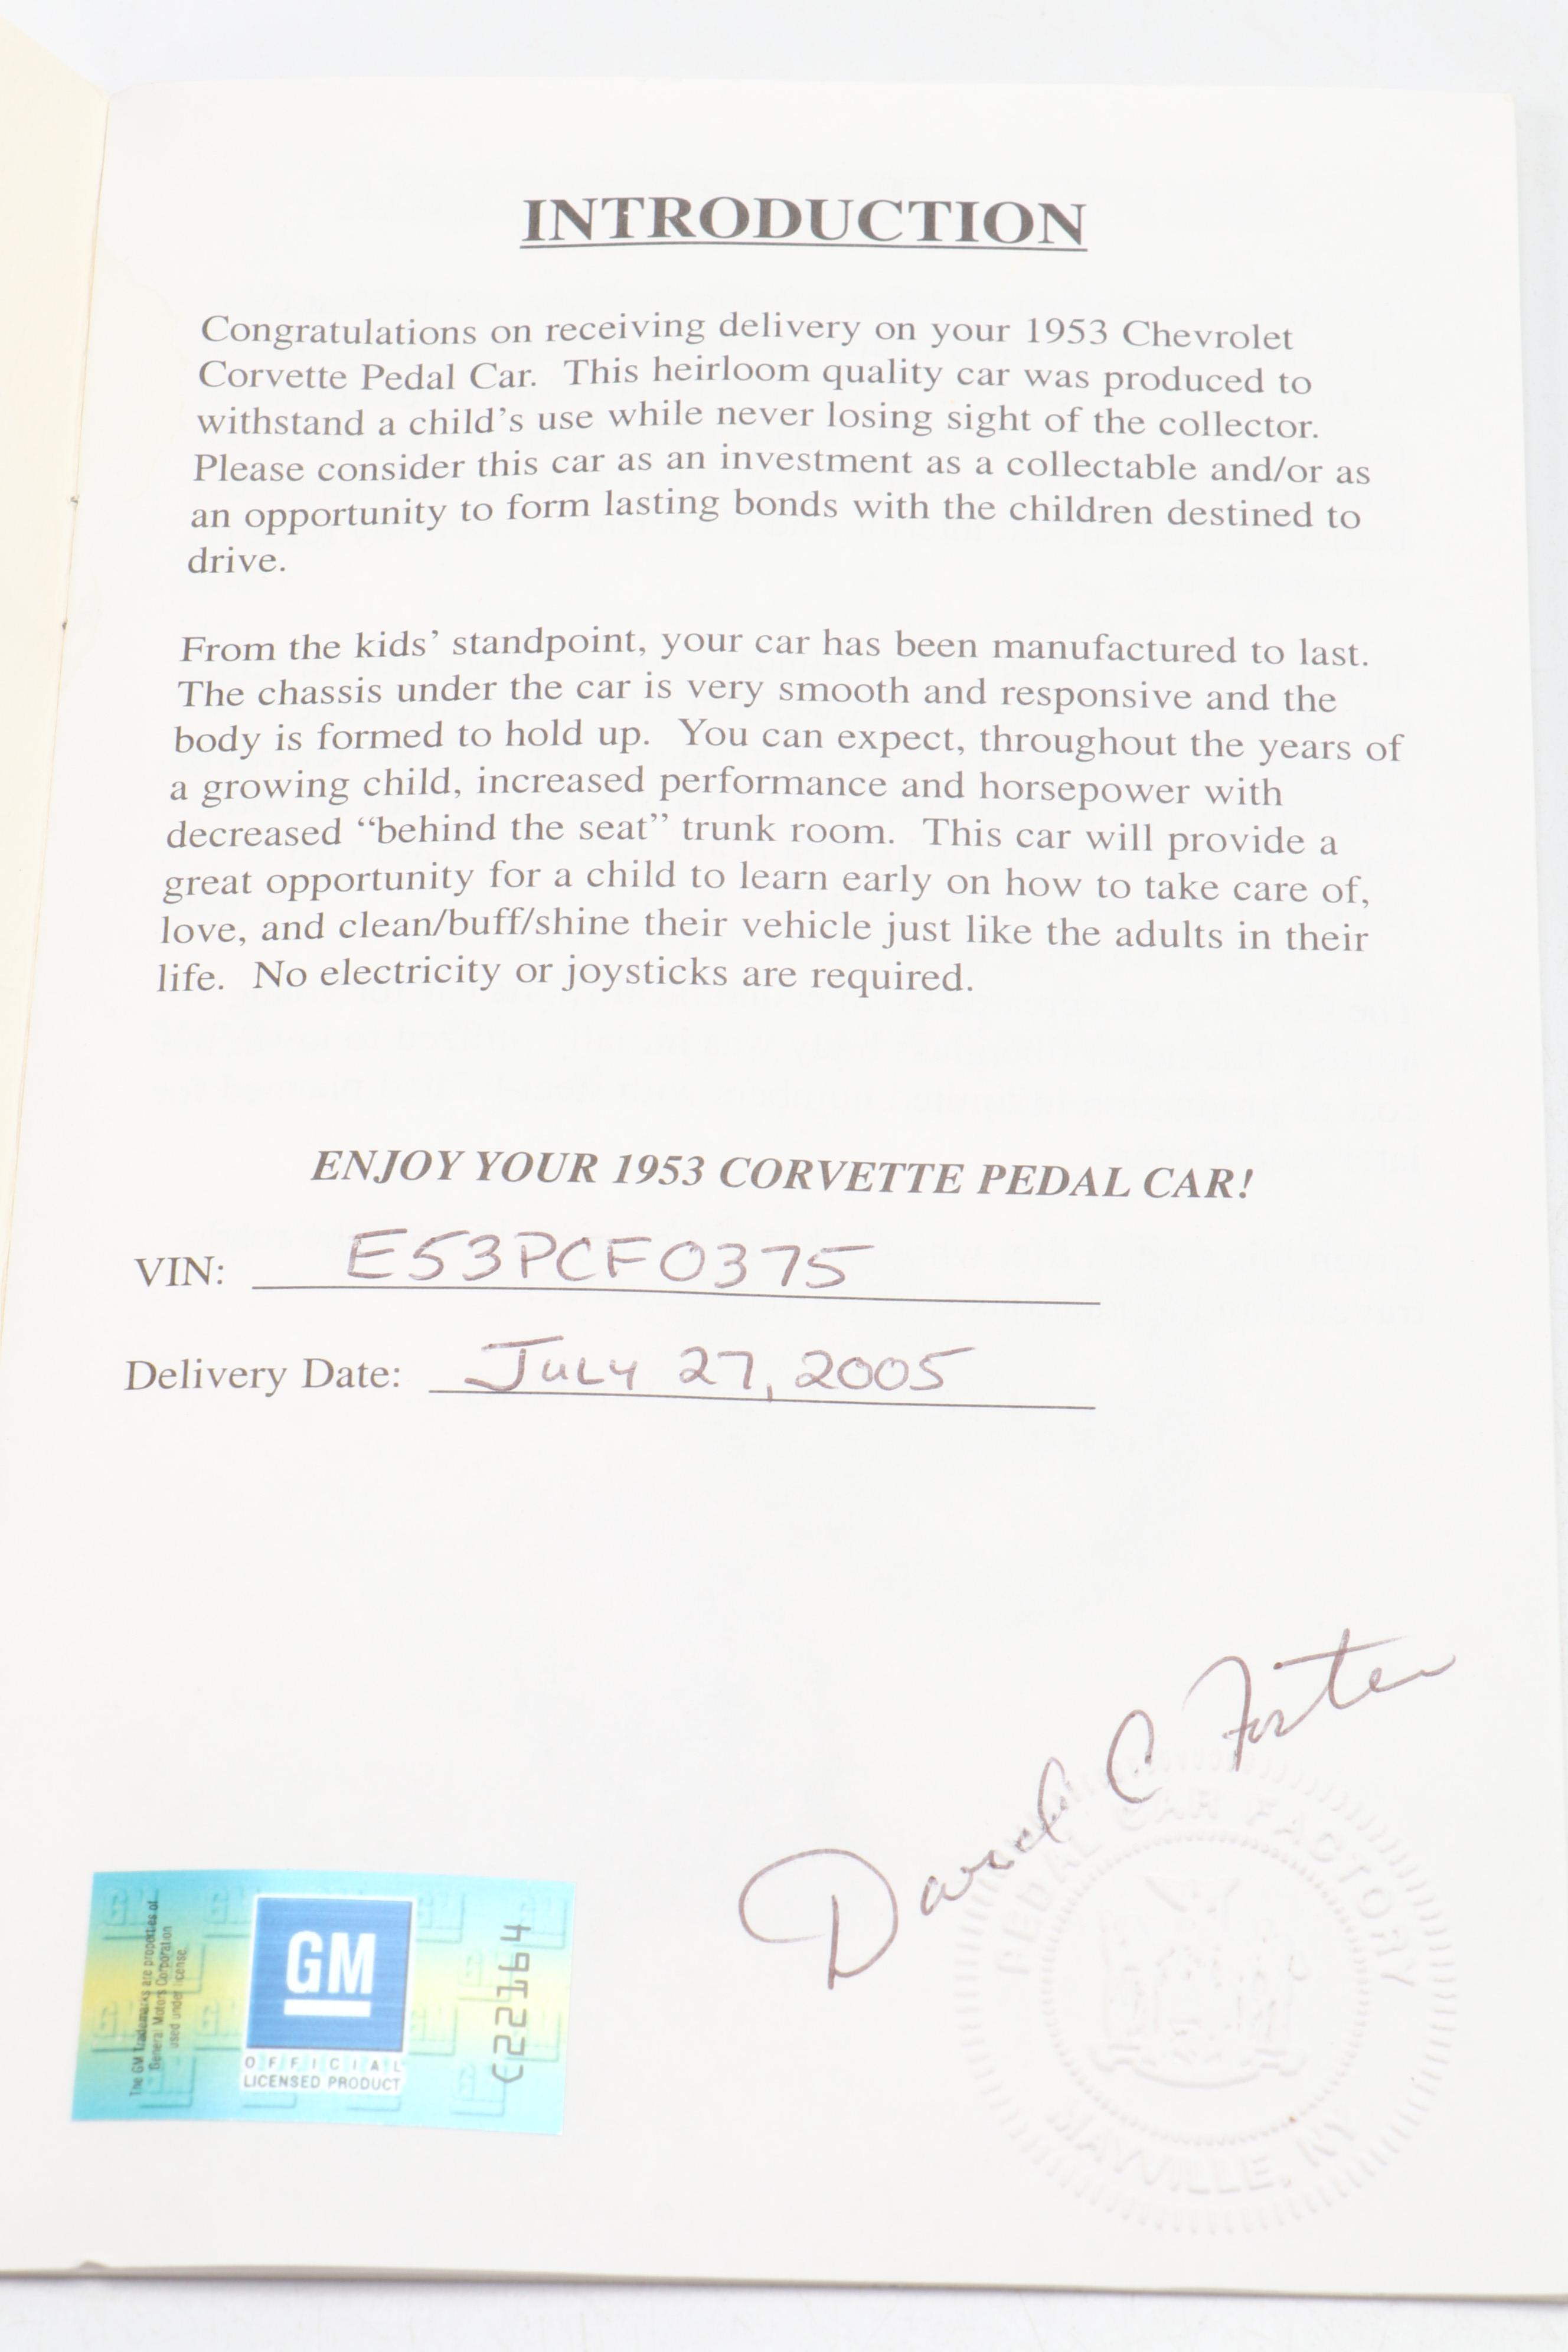 INTRODUCTION
Congratulations on receiving delivery on your 1953 Chevrolet
Corvette Pedal Car. This heirloom quality car was produced to
withstand a child's use while never losing sight of the collector.
Please consider this car as an investment as a collectable and/or as
an opportunity to form lasting bonds with the children destined to
drive.
From the kids’ standpoint, your car has been manufactured to last.
The chassis under the car is very smooth and responsive and the
body is formed to hold up. You can expect, throughout the years of
a growing child, increased performance and horsepower with
decreased “behind the seat” trunk room. This car will provide a
great opportunity for a child to learn early on how to take care of,
love, and clean/buff/shine their vehicle just like the adults in their
life. No electricity or joysticks are required.
ENJOY YOUR 1953 CORVETTE PEDAL CAR!
VIN: E53PCF0375
Delivery Date: July 27, 2005
C Foster
PEDAL CAR FACTORY
MAYVILLE, NY
The GM Trademarks are properties of
General Motors Corporation
used under license.
GM
OFFICIAL
LICENSED PRODUCT
C22164